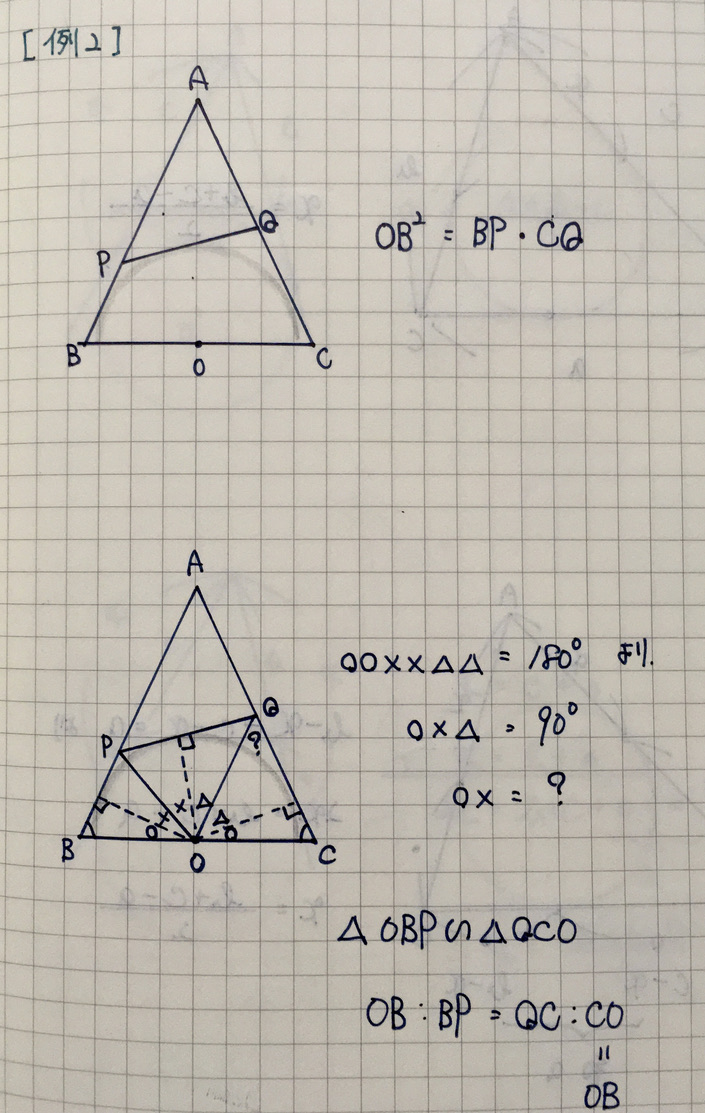 [例2]
A
Q
P
B
O
C
OB² = BP・CQ
A
Q
P
?
○ × × △ △ ○
B
O
C
○○××△△ = 180° より.
○×△ = 90°
○× = ?
△OBP∽△QCO
OB : BP = QC : CO
=
OB